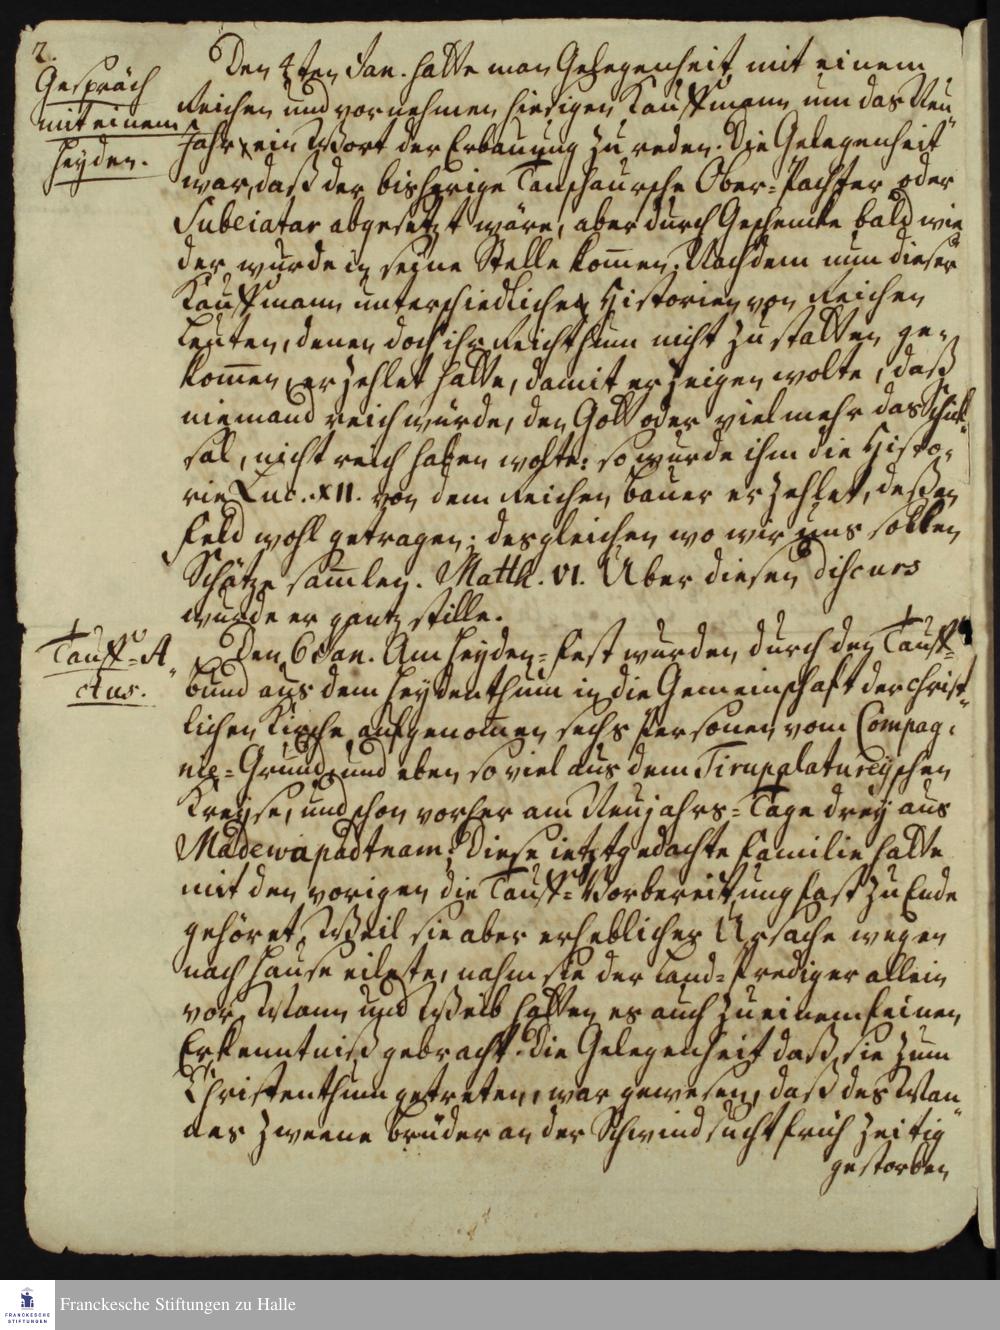 2.
Gespräch
mit einem
Heyden.
Den 4ten Jan. hatte man Gelegenheit mit einem
Reichen und vornehmen hiesigen Kauffmann um das Neu
Jahr ein Wort der Erbauung zu reden. Die Gelegenheit
war, daß der bisherige Tanschaursche Ober-Pachter oder
Subeiatar abgesetzt wäre, aber durch Geschencke bald wie
der wurde in seine Stelle kom̄en. Nachdem nun dieser
Kauffmann unterschiedliche Historien von Reichen
Leuten, denen doch ihr Reichthum nicht zu statten ge-
kom̄en, erzehlet hatte, damit er zeigen wolte, daß
niemand reich würde, den Gott oder viel mehr das Schick-
sal, nicht reich haben wolte: so wurde ihm die Histo-
rie Luc. XII. von dem Reichen Bauer erzehlet, deßen
Feld wohl getragen; desgleichen wo wir uns sollen
Schätze sam̄len. Matth. VI. Über diesen Discurs
wurde er gantz stille.
Tauff-A-
ctus.
Den 6 Jan. Am Heyden-Fest wurden durch den Tauff-
bund aus dem Heydenthum in die Gemeinschaft der Christ-
lichen Kirche aufgenom̄en sechs Personen vom Compag-
nie-Grund, und eben so viel aus dem Tirupplatureyschen
Kreyse, und schon vorher am Neujahrs-Tage drey aus
Madewapadtnam; Diese ietztgedachte Familie hatte
mit den vorigen die Tauff-Vorbereitung fast zu Ende
gehöret, Weil sie aber erheblicher Ursache wegen
nach Hause eilete, nahm sie der Land-Prediger allein
vor. Mann und Weib hatten es auch zu einem feinen
Erkenntniß gebracht. Die Gelegenheit daß sie zum
Christenthum getreten, war gewesen, daß des Man
nes zweene Brüder an der Schwindsucht früh zeitig
gestorben
Franckesche Stiftungen zu Halle
FRANCKESCHE
STIFTUNGEN